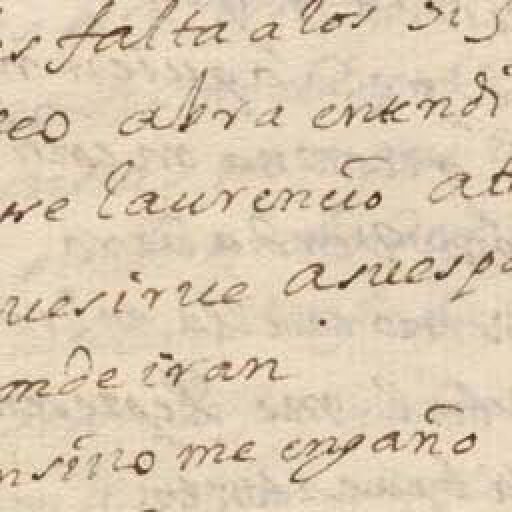 falta a los
abra entendi
laurencio
uesirue asuesp
onde iran
sino me engaño